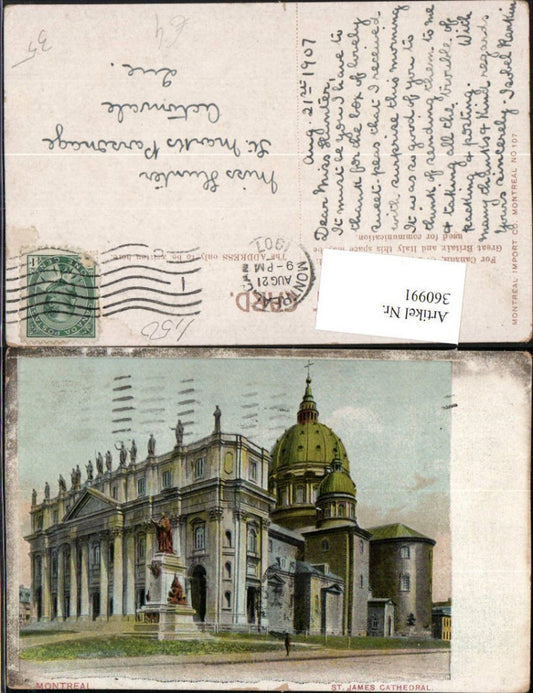 Aug. 21st 1907
Dear Miss Hunter,
It must be you I have to
thank for the box of lovely
sweet peas that I received
with surprise this morning
It is so good of you to
think of sending them to me
& taking all the trouble of
packing & posting. With
many thanks & Kind regards
Yours sincerely. Isobel Rankin
Miss Hunter
St. Mark's Parsonage
Actonvale
Que.
35
64
450
MONTREAL
AUG 21
9-PM
1907
The ADDRESS to be only to be written here
CARD
For Canada,
Great Britain and Italy this space may be
used for communication
MONTREAL IMPORT CO. MONTREAL NO 107
Artikel Nr.
360991
MONTREAL
ST. JAMES CATHEDRAL.